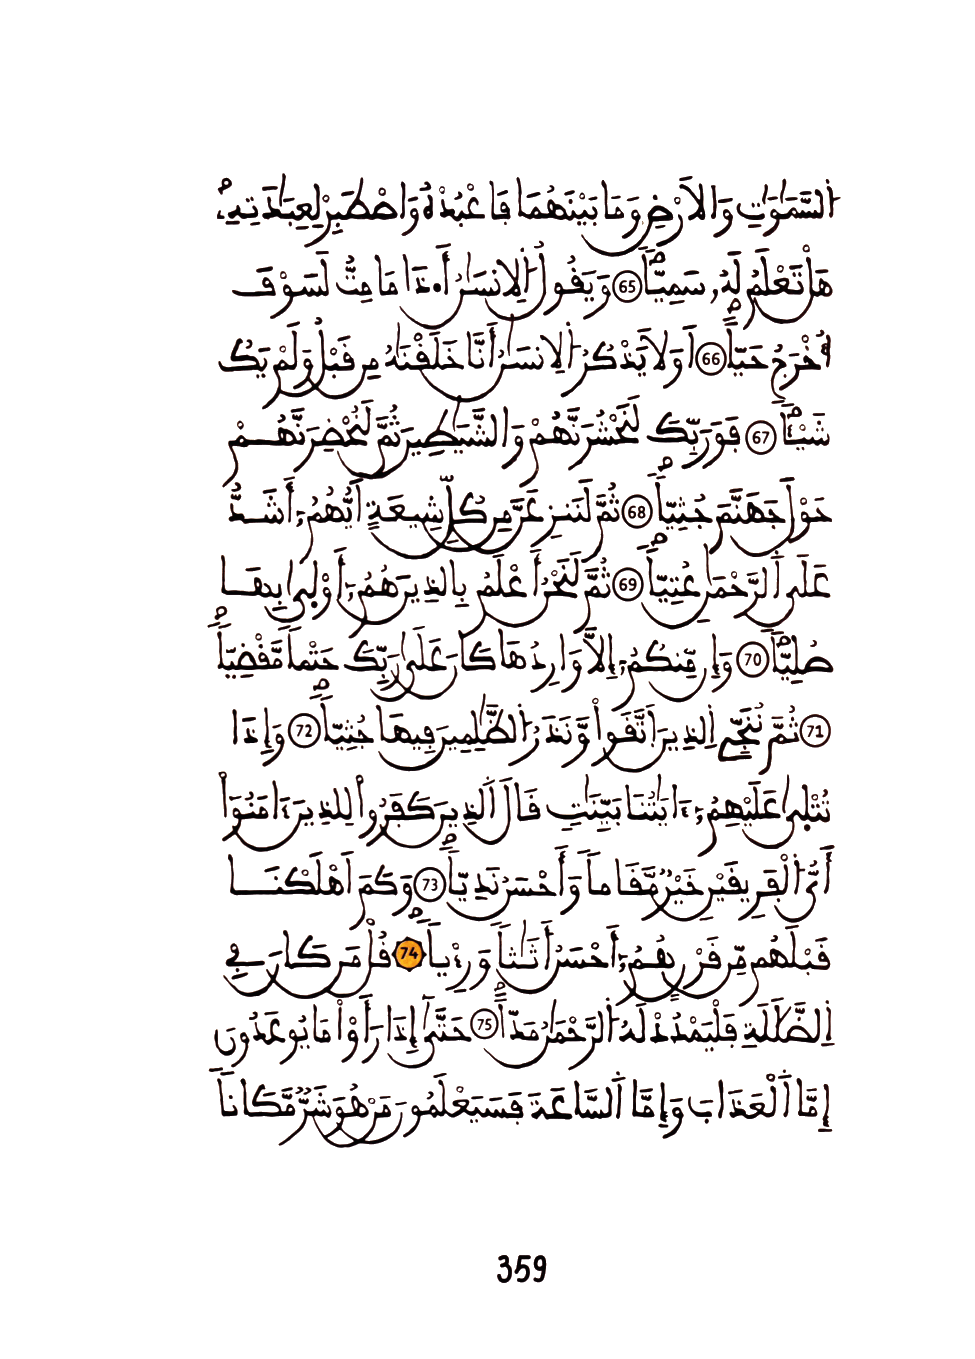 اَ۬لسَّمَٰوَٰتِ وَالَارْضِ وَمَا بَيْنَهُمَا فَاعْبُدْهُ وَاصْطَبِرْ لِعِبَٰدَتِهِۦۖ
هَلْ تَعْلَمُ لَهُۥ سَمِيّاٗۖ 65 وَيَقُولُ اُ۬لِانسَٰنُ أَ.ذَا مَا مِتُّ لَسَوْفَ
أُخْرَجُ حَيّاًۖ 66 اَوَلَا يَذْكُرُ اُ۬لِانسَٰنُ أَنَّا خَلَقْنَٰهُ مِن قَبْلُ وَلَمْ يَكُ
شَيْـٔاٗۖ 67 فَوَرَبِّكَ لَنَحْشُرَنَّهُمْ وَالشَّيَٰطِينَ ثُمَّ لَنُحْضِرَنَّهُمْ
حَوْلَ جَهَنَّمَ جُثِيّاٗۖ 68 ثُمَّ لَنَنزِعَنَّ مِن كُلِّ شِيعَةٍ اَيُّهُمُۥٓ أَشَدُّ
عَلَي اَ۬لرَّحْمَٰنِ عُتِيّاٗۖ 69 ثُمَّ لَنَحْنُ أَعْلَمُ بِالذِينَ هُمُۥٓ أَوْلِيٰ بِهَا
صُلِيّاٗۖ 70 وَإِن مِّنكُمُۥٓ إِلَّا وَارِدُهَا كَانَ عَلَيٰ رَبِّكَ حَتْماٗ مَّقْضِيّاٗۖ
71 ثُمَّ نُنَجِّي اِ۬لذِينَ اَ۪تَّقَواْ وَّنَذَرُ اُ۬لظَّٰلِمِينَ فِيهَا جُثِيّاٗۖ 72 وَإِذَا
تُتْلِيٰ عَلَيْهِمُۥٓ ءَايَٰتُنَا بَيِّنَٰتٖ قَالَ اَ۬لذِينَ كَفَرُواْ لِلذِينَ ءَامَنُوٓاْ
أَيُّ اُ۬لْفَرِيقَيْنِ خَيْرٞ مَّقَاماٗ وَأَحْسَنُ نَدِيّاٗۖ 73 وَكَمَ اَهْلَكْنَا
قَبْلَهُم مِّن قَرْنٍ هُمُۥٓ أَحْسَنُ أَثَٰثاٗ وَرِءْياٗۖ 74 قُلْ مَن كَانَ فِي
اِ۬لضَّلَٰلَةِ فَلْيَمْدُدْ لَهُ اُ۬لرَّحْمَٰنُ مَدّاًۖ 75 حَتَّىٰٓ إِذَا رَأَوْاْ مَا يُوعَدُونَ
إِمَّا اَ۬لْعَذَابَ وَإِمَّا اَ۬لسَّاعَةَ فَسَيَعْلَمُونَ مَنْ هُوَ شَرّٞ مَّكَاناٗ
359